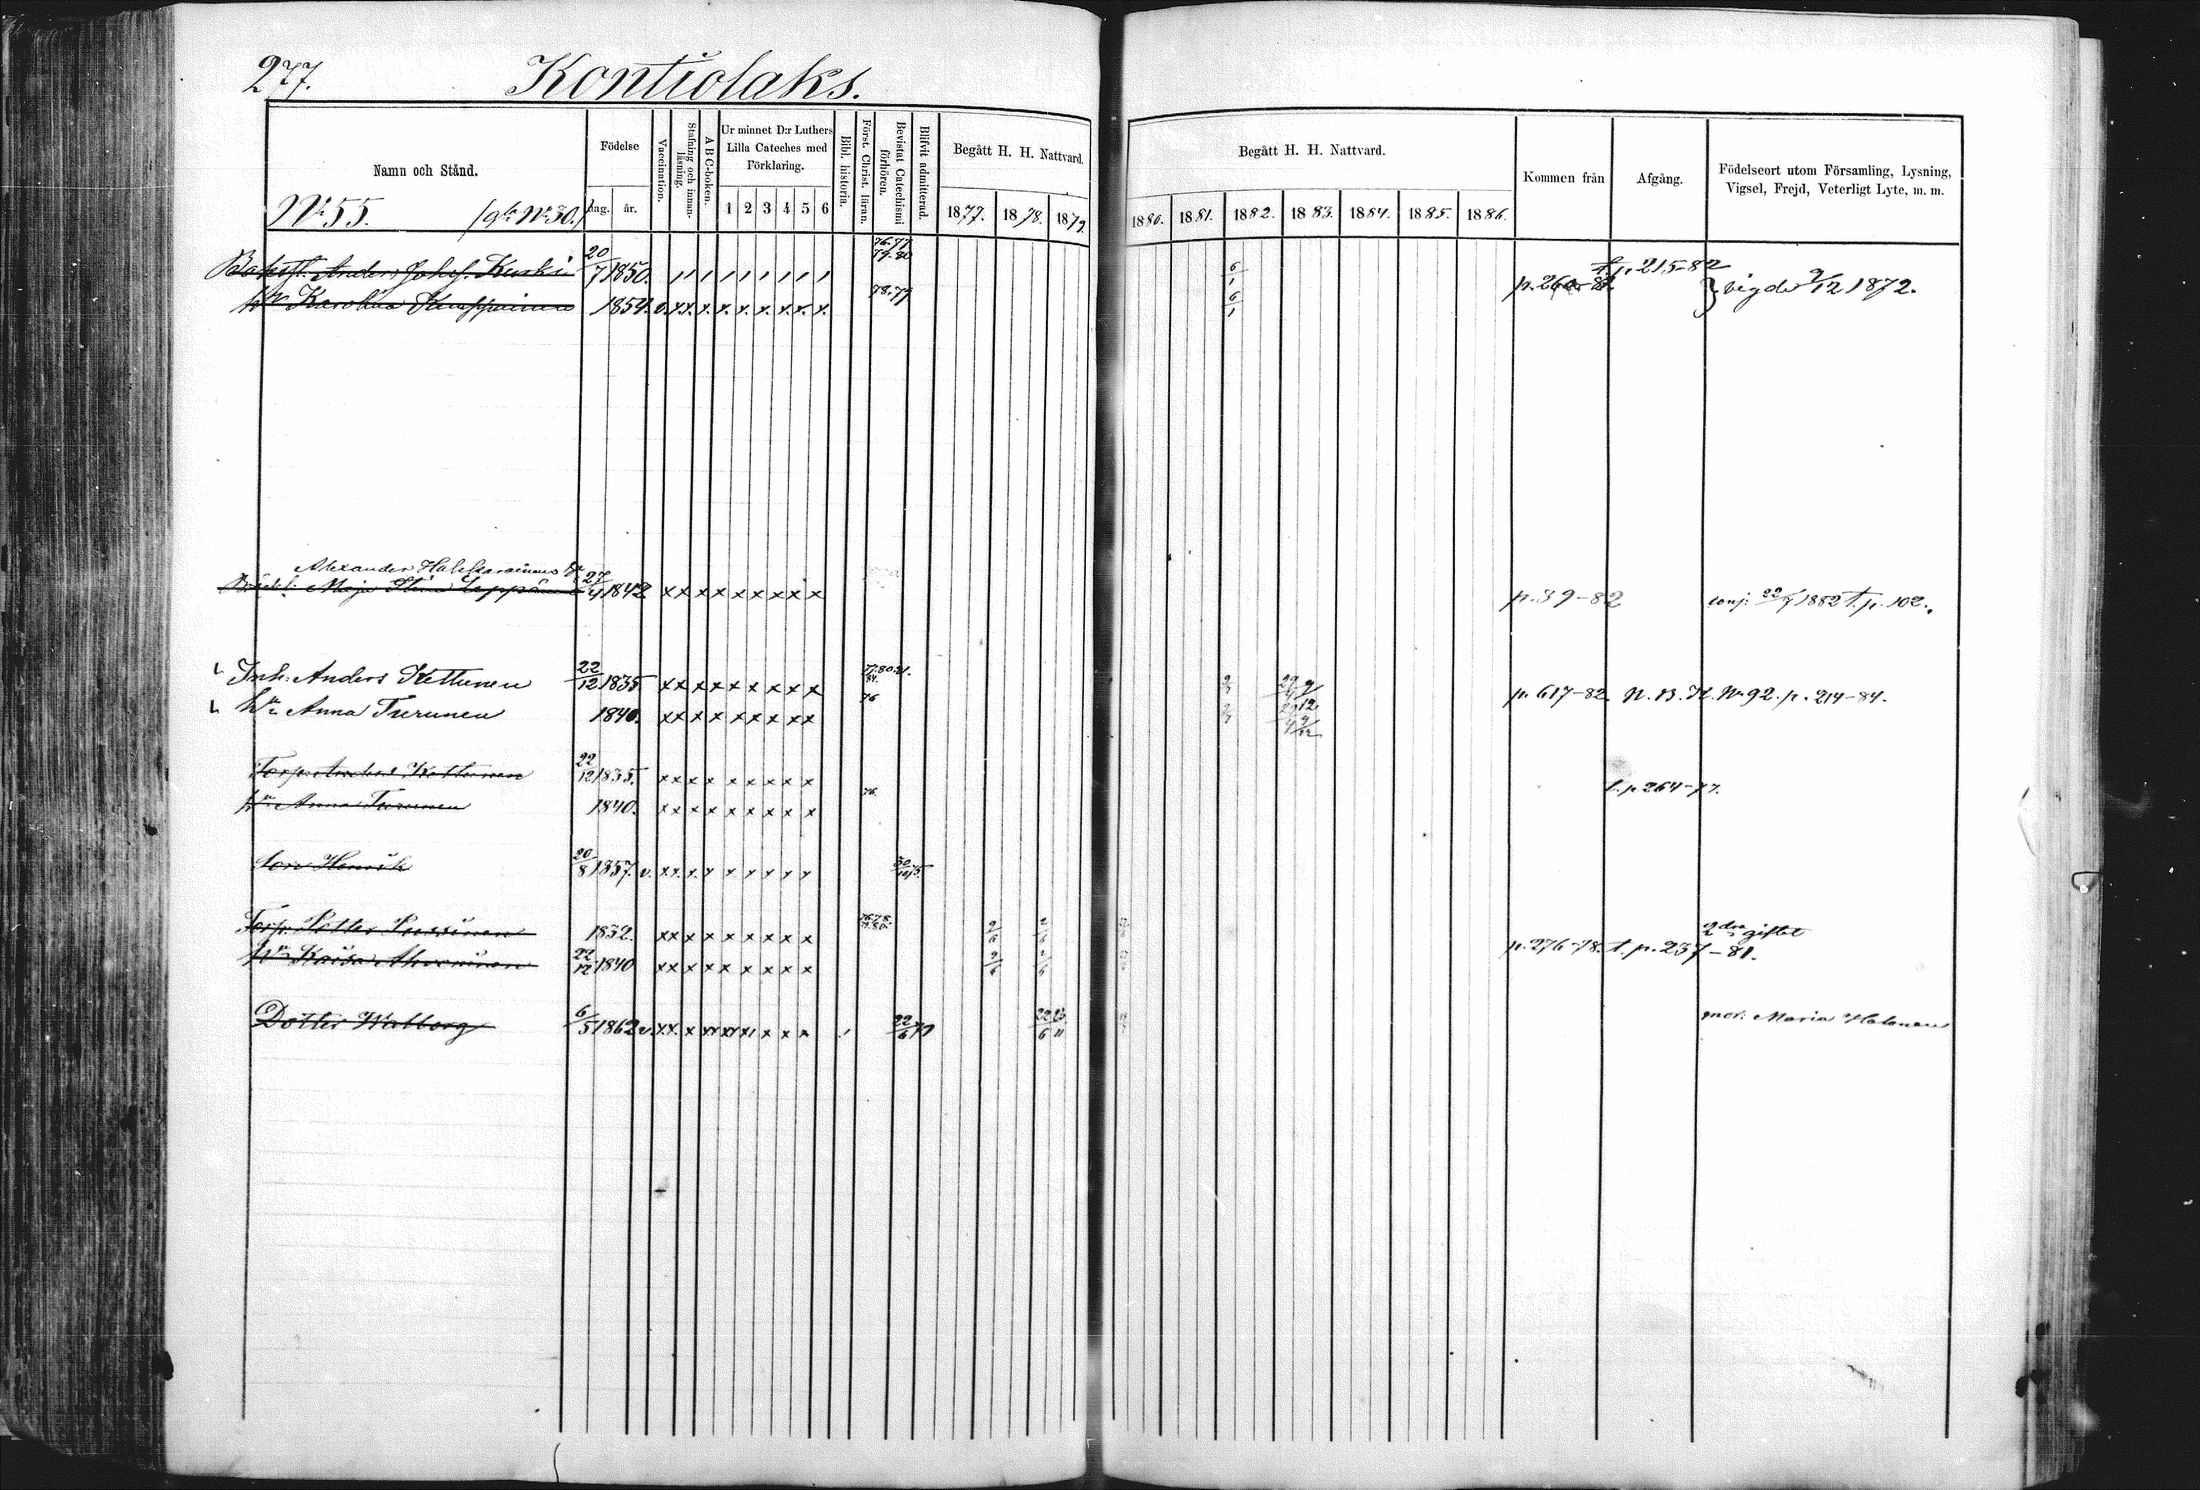 277.
Kontiolaks.
Namn och Stånd.
Födelse
dag. år.
Vaccination.
Stafning och innanläsning.
A B C-boken.
Ur minnet D:r Luthers Lilla Cateches med Förklaring.
1 2 3 4 5 6
Bibl. historia.
Först. Christ. läran.
Bevistat Catechismi förhören.
Blifvit admitterad.
Begått H. H. Nattvard.
1877. 1878. 1879.
Begått H. H. Nattvard.
1880. 1881. 1882. 1883. 1884. 1885. 1886.
Kommen från
Afgång.
Födelseort utom Församling, Lysning, Vigsel, Frejd, Veterligt Lyte, m. m.
No 55. No 30.
Anders Johof. Kuski 20/7 1850. 76.77 79.80 6/1 t. p. 215-82
hu Karolina 1854. v. x x x. x. x. x. x. x. 78.79 6/1 vigde 9/12 1872.
Alexander
Maja Stina Leppänen 27/4 1842 x x x x x x x x x p. 39-82 conj: 22/7 1882 t. p. 102.
Inh. Anders Kettunen 22/12 1835 x x x x x x x x x 77.80.81. 84. p. 617-82. N. B. K. No 92. p. 214-84.
hu Anna Turunen 1840. x x x x x x x x x 76
Torp. Anders Kettunen 22/12 1835. x x x x x x x x x
hu Anna Turunen 1840. x x x x x x x x x 76. t. p. 264-77.
Son Henrik 20/8 1857. v. x x. x. x x x x x x 30/10 75.
Torp. Petter 1832. x x x x x x x x x 2/6 2/6 2dra giftet
hu Kaisa Ahveninen 22/12 1840 x x x x x x x x x 2/6 2/6 p. 276-78. t. p. 237-81.
Dotter Walborg 6/5 1862 v. 22/6 79 22/6 23/11 mor: Maria Holonen